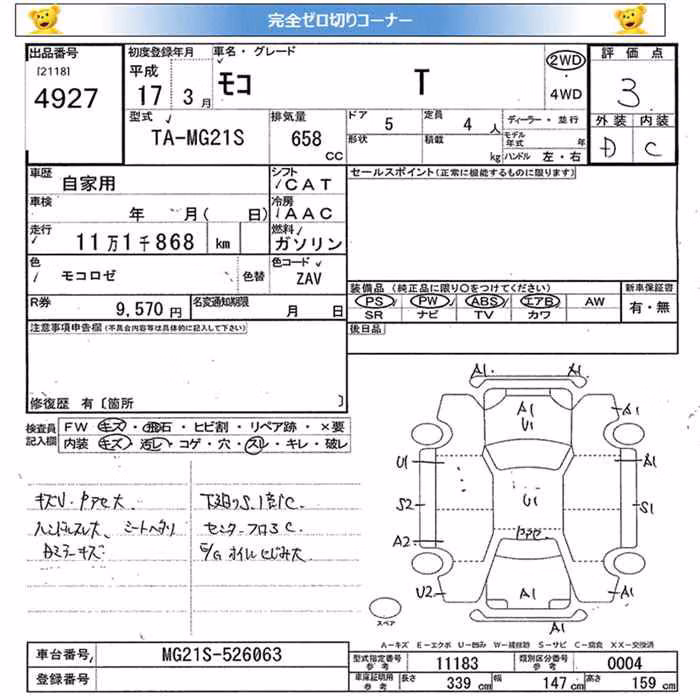 完全ゼロ切りコーナー
出品番号 初度登録年月 車名・グレード 評価点
[2118] 平成 2WD
4927 17 3月 モコ T ・ 3
4WD
型式 排気量 ドア 5 定員 4人 ディーラー・並行 外装 内装
TA-MG21S 658 CC 形状 積載 kg モデル年式 年 D C
ハンドル 左・右
車歴 自家用 シフト CAT セールスポイント(正常に機能するものに限ります)
車検 年 月( 日) 冷房 AAC
走行 11万1千868 km 燃料 ガソリン
色 モコロゼ 色替 色コード ZAV
装備品 (純正品に限り○をつけてください) 新車保証書
R券 9,570円 名変通知期限 月 日 PS PW ABS エアB AW 有・無
SR ナビ TV カワ
注意事項申告欄(不具合内容等は具体的に記入して下さい) 後日品
修復歴 有〔箇所 〕
検査員 FW キズ・飛石・ヒビ割・リペア跡・×要
記入欄 内装 キズ・汚レ・コゲ・穴・スレ・キレ・破レ
A1 A1
A1 U1 A1 A1
U1 A1
S2 U1 S1
A2
U2 A1 A1
A1
キズU・
ハンドルスレ大
キズ
下廻りS.
センターフロアC
E/Gオイルにじみ大
スペア
A-キズ E-エクボ U-凹み W-補修跡 S-サビ C-腐食 XX-交換済
車台番号 MG21S-526063 型式指定番号 参考 11183 類別区分番号 参考 0004
登録番号 車庫証明用 参考 長さ 339 cm 幅 147 cm 高さ 159 cm